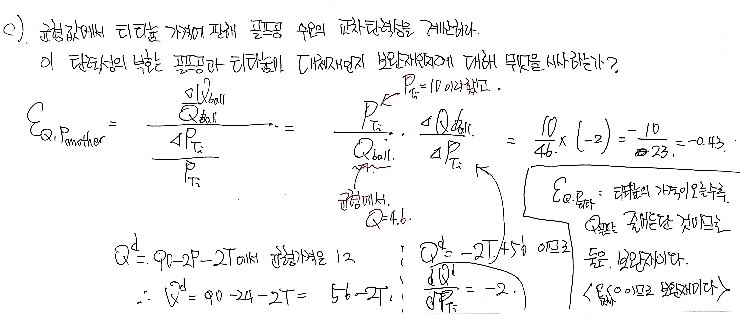 c). 균형값에서 티타늄 가격에 관해 골프공 수요의 교차탄력성을 계산하라.
이 탄력성의 부호는 골프공과 티타늄이 대체재인지 보완재인지에 대해 무엇을 시사하는가?
P_Ti = 10 이라 했고.
ε_Q,Panother = (ΔQball / Qball) / (ΔP_Ti / P_Ti) = P_Ti / Qball · ΔQball / ΔP_Ti = 10/46 × (-2) = -10/23 = -0.43.
균형에서 Q=46.
ε_Q,P티타 = 티타늄의 가격이 오를수록
Q골프는 줄어든단 것이므로
둘은 보완재이다.
<0 이므로 보완재이다>
Q^d = 90-2P-2T에서 균형가격은 12
∴ Q^d = 90-24-2T = 56-2T.
Q^d = -2T+56 이므로
dQ^d / dP_Ti = -2.